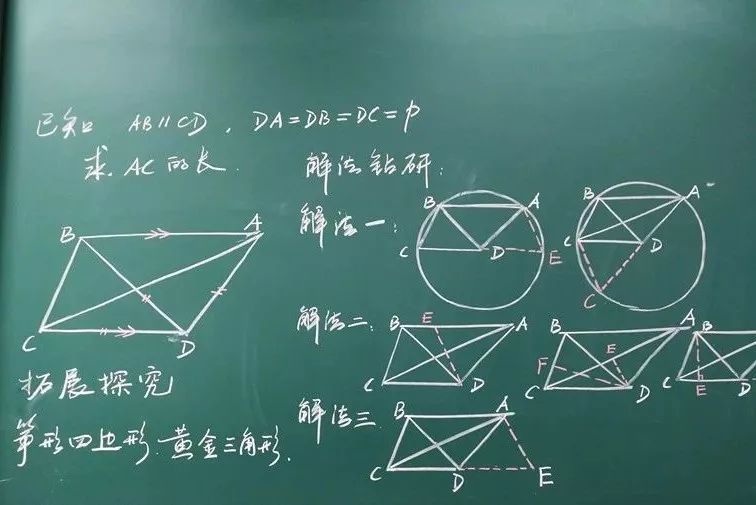 已知 AB∥CD, DA=DB=DC=p
求 AC的长.
解法钻研:
B A
C D
拓展探究
筝形四边形.黄金三角形.
解法一:
B A
C D E
B A
C D
C
解法二:
B E A
C D
B A
F E
C D
B
C E
解法三
B A
C D E